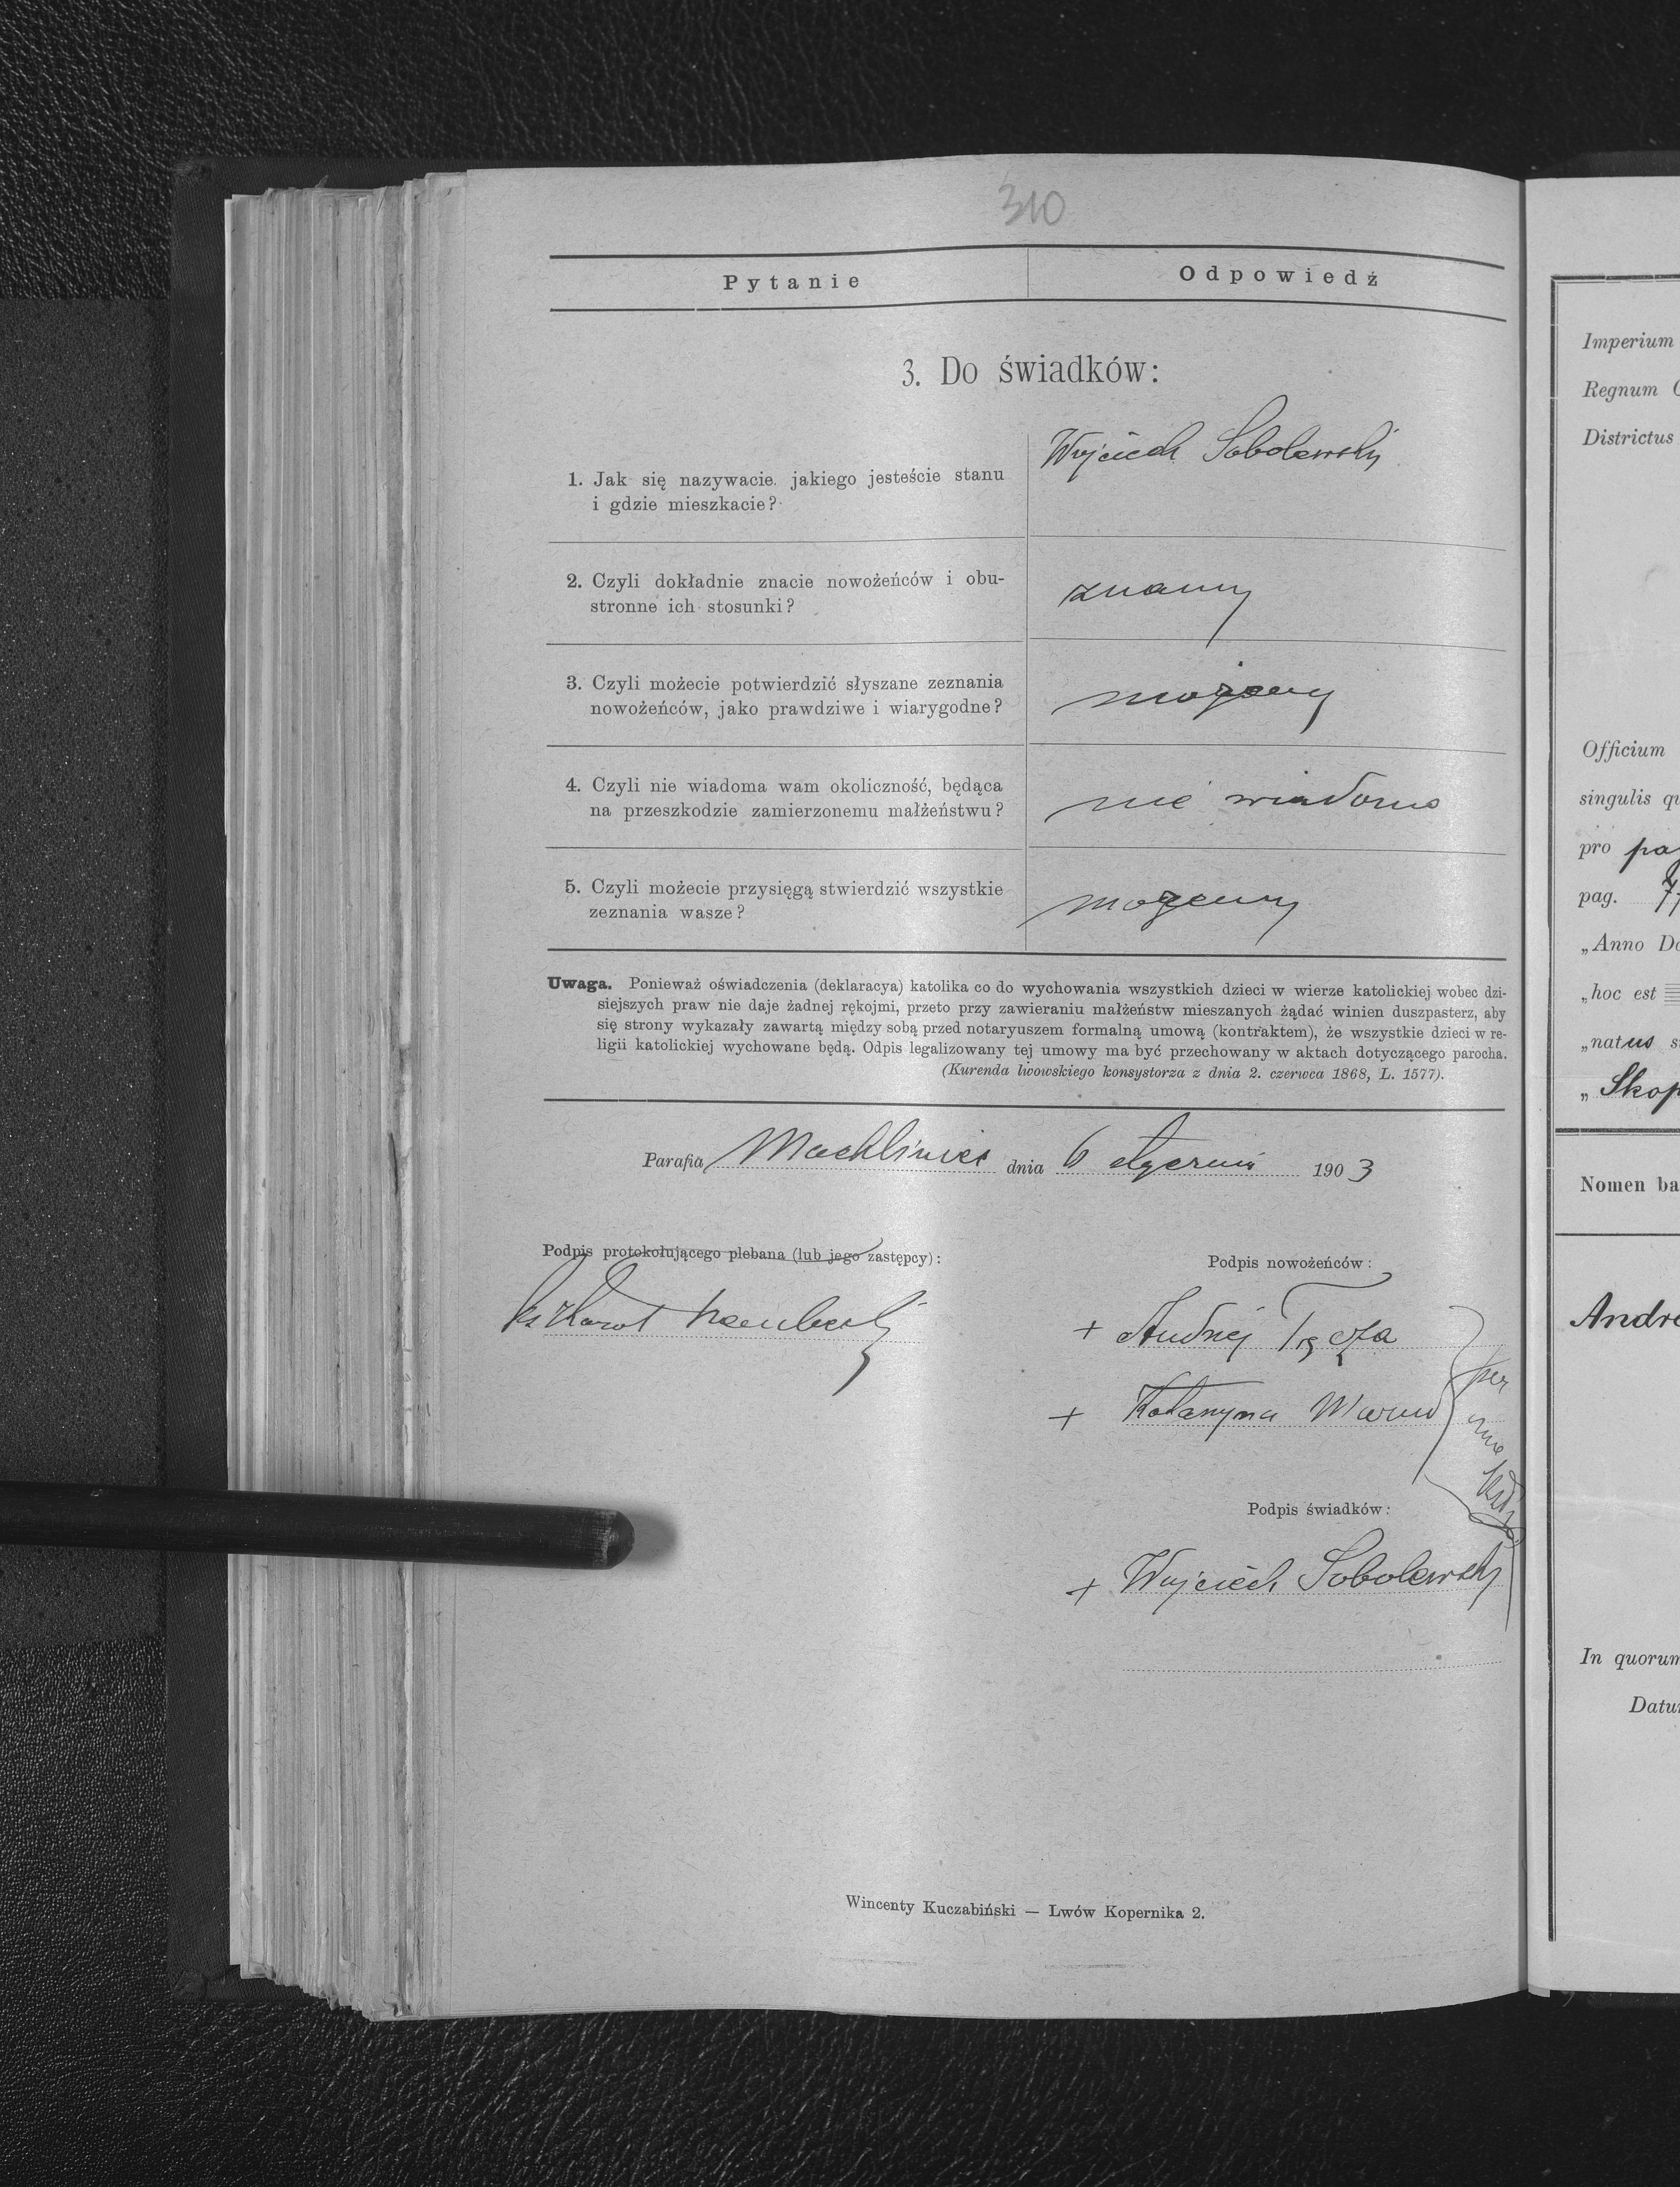 310
Pytanie Odpowiedź
3. Do świadków:
1. Jak się nazywacie. jakiego jesteście stanu
i gdzie mieszkacie?
Wojciech Sobolewski
2. Czyli dokładnie znacie nowożeńców i obu-
stronne ich stosunki?
znamy
3. Czyli możecie potwierdzić słyszane zeznania
nowożeńców, jako prawdziwe i wiarygodne?
możemy
4. Czyli nie wiadoma wam okoliczność, będąca
na przeszkodzie zamierzonemu małżeństwu?
nie wiadomo
5. Czyli możecie przysięgą stwierdzić wszystkie
zeznania wasze?
możemy
Uwaga. Ponieważ oświadczenia (deklaracya) katolika co do wychowania wszystkich dzieci w wierze katolickiej wobec dzi-
siejszych praw nie daje żadnej rękojmi, przeto przy zawieraniu małżeństw mieszanych żądać winien duszpasterz, aby
się strony wykazały zawartą między sobą przed notaryuszem formalną umową (kontraktem), że wszystkie dzieci w re-
ligii katolickiej wychowane będą. Odpis legalizowany tej umowy ma być przechowany w aktach dotyczącego parocha.
(Kurenda lwowskiego konsystorza z dnia 2. czerwca 1868, L. 1577).
Parafia Machliniec dnia 6 stycznia 1903
Podpis protokołującego plebana (lub jego zastępcy):
Ks Karol
Podpis nowożeńców:
+ Andrzej Tęcza
+ Katarzyna
per
me
Podpis świadków:
+ Wojciech Sobolewski
Wincenty Kuczabiński — Lwów Kopernika 2.
Imperium
Regnum
Districtus
Officium
singulis
pro
pag.
„Anno
„hoc est
„natus
„Skop
Nomen ba
Andre
In quorum
Datu